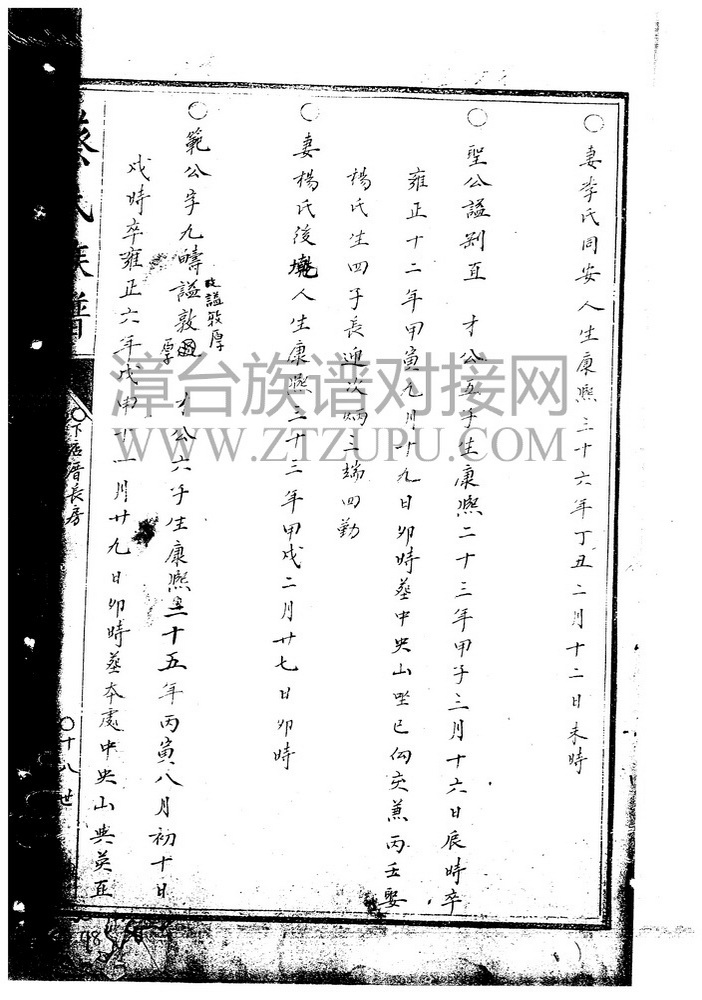 ○妻李氏同安人生康熙三十六年丁丑二月十二日未時
○聖公諡剛直 才公五子生康熙二十三年甲子三月十六日辰時卒
雍正十二年甲寅九月十九日卯時葬中央山坐巳向亥兼丙壬娶
楊氏生四子長迎次炳三端四勤
○妻楊氏後人生康熙三十三年甲戌二月廿七日卯時
○範公字九疇諡敦厚 才公六子生康熙二十五年丙寅八月初十日
改諡敦厚
戌時卒雍正六年戊申十一月廿九日卯時葬本處中央山與英直
蔡氏族譜
厝長房
○十八世
漳台族谱对接网
WWW.ZTZUPU.COM
98